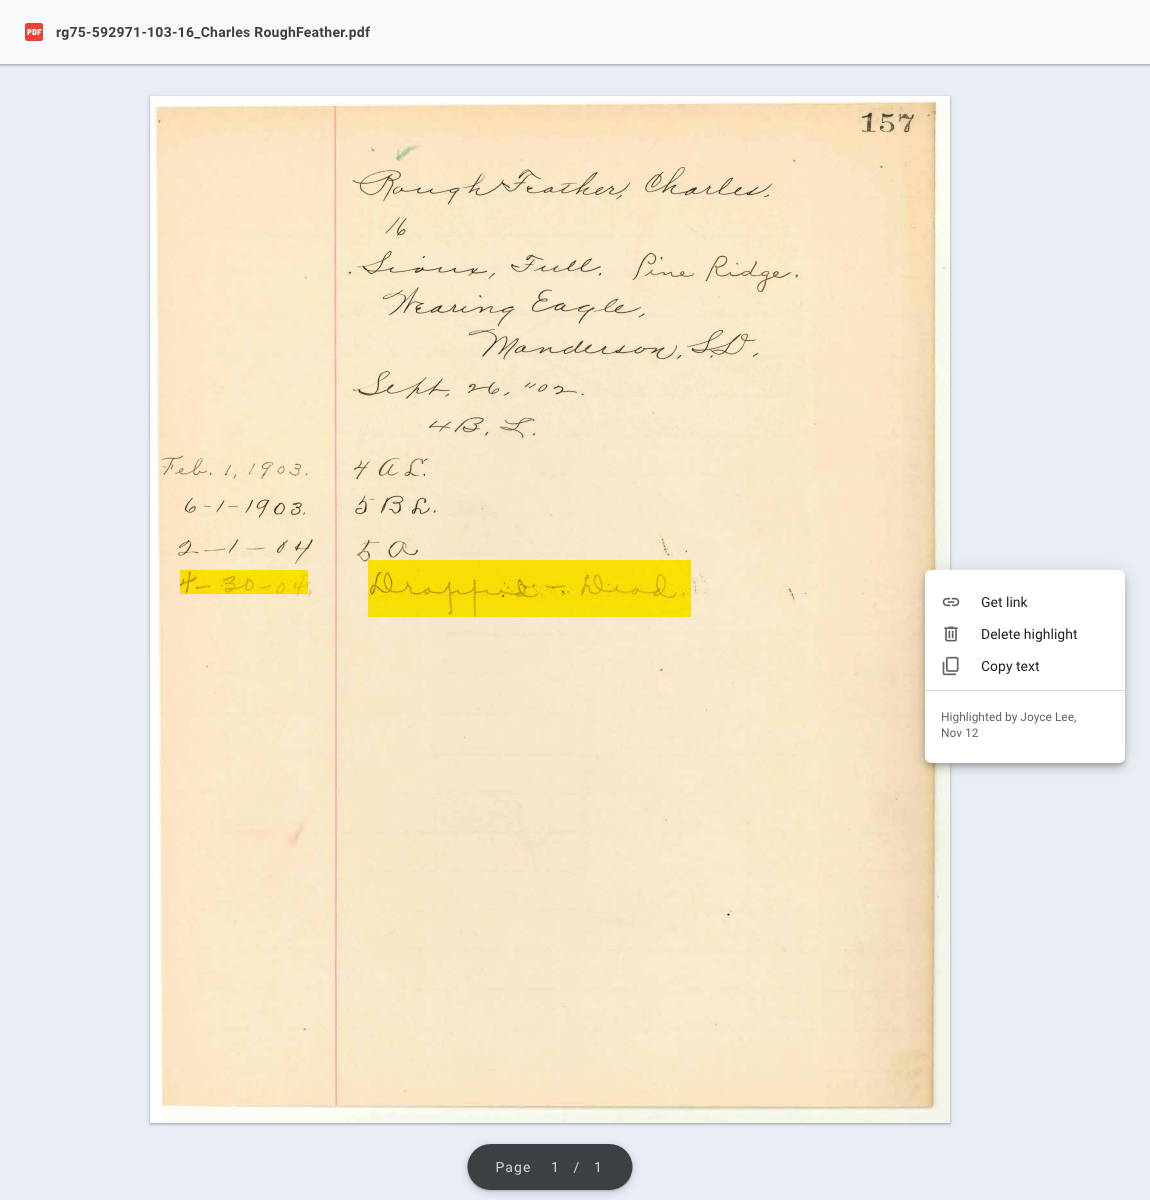 PDF rg75-592971-103-16_Charles RoughFeather.pdf
157
Rough Feather, Charles.
16
Sioux, Full. Pine Ridge.
Wearing Eagle,
Manderson, S.D.
Sept. 26, "02.
4 B. L.
Feb. 1, 1903. 4 A L.
6-1-1903. 5 B L.
2-1-04 5 A
4-30-04. Dropped - Dead.
Get link
Delete highlight
Copy text
Highlighted by Joyce Lee,
Nov 12
Page 1 / 1